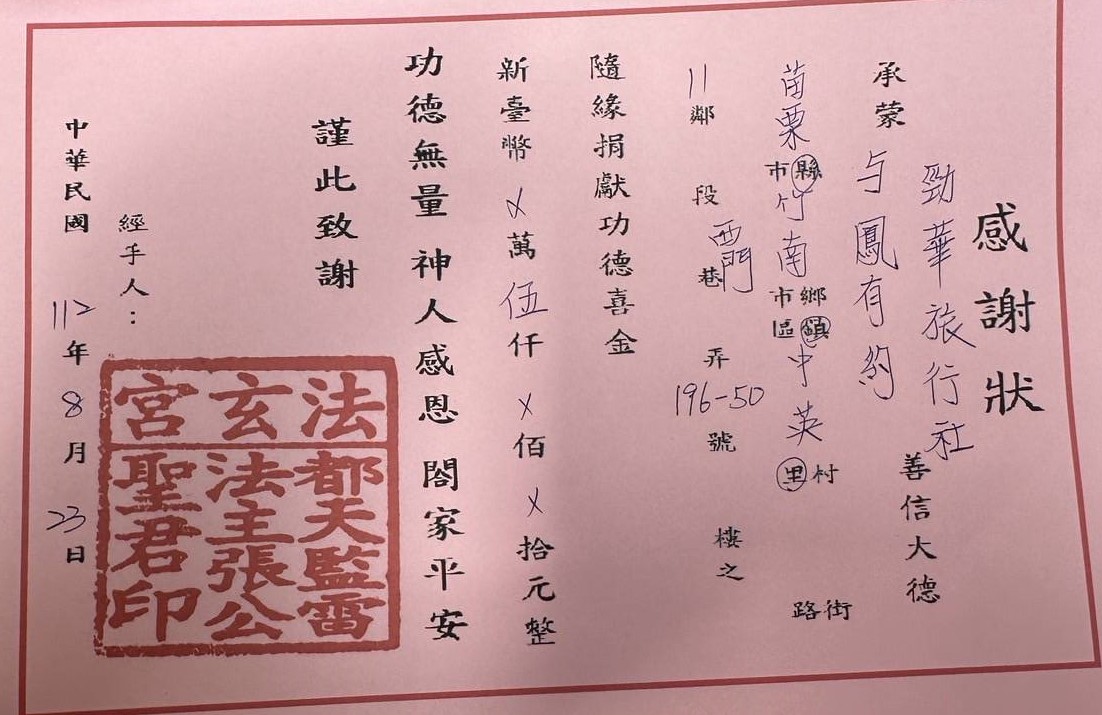 感謝狀
勁華旅行社
承蒙 与鳳有約 善信大德
苗栗市縣竹南市鄉區鎮中英里村 路街
11鄰 段 西門巷 弄 196-50號 樓之
隨緣捐獻功德喜金
新臺幣 x 萬 伍 仟 x 佰 x 拾元整
功德無量 神人感恩 閤家平安
謹此致謝
經手人：
中華民國 112 年 8 月 23 日
法玄宮
都天監雷
法主張公
聖君印